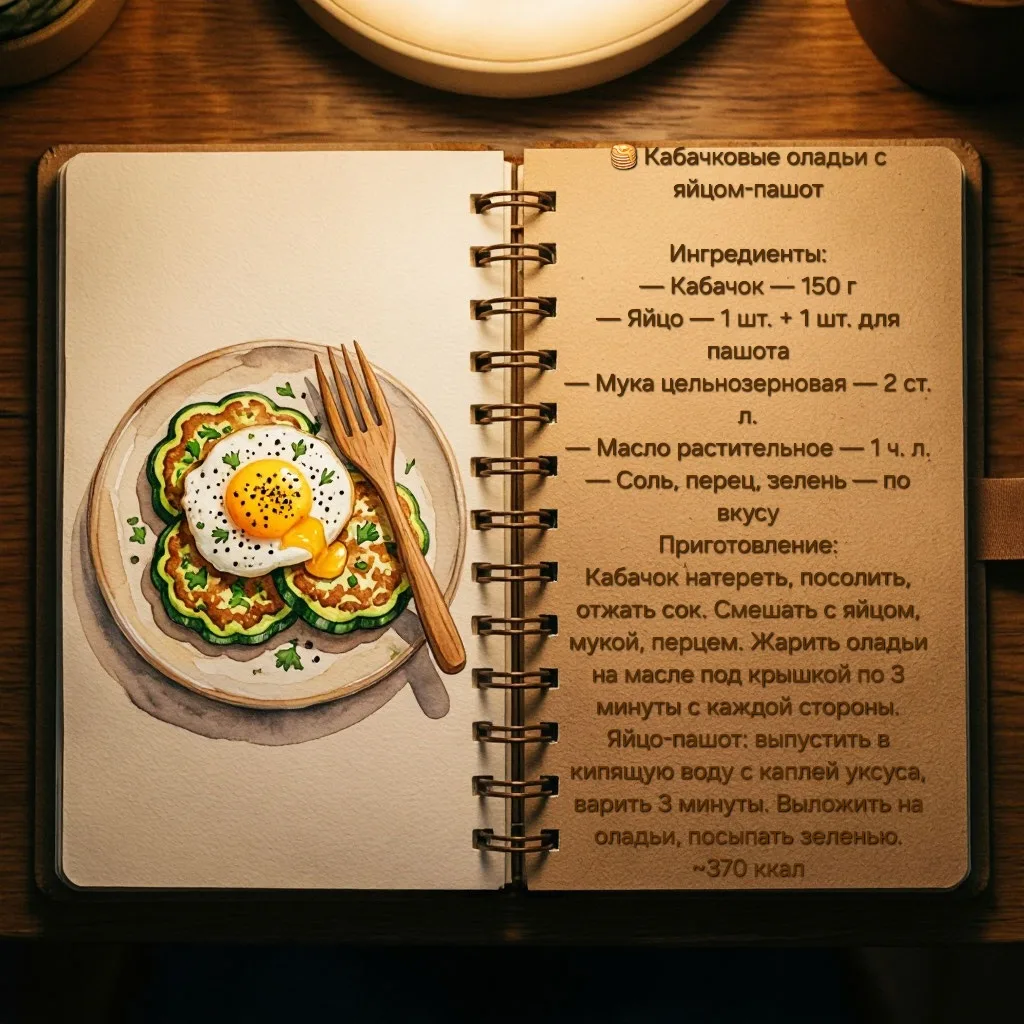 🥞 Кабачковые оладьи с
яйцом-пашот
Ингредиенты:
— Кабачок — 150 г
— Яйцо — 1 шт. + 1 шт. для
пашота
— Мука цельнозерновая — 2 ст.
л.
— Масло растительное — 1 ч. л.
— Соль, перец, зелень — по
вкусу
Приготовление:
Кабачок натереть, посолить,
отжать сок. Смешать с яйцом,
мукой, перцем. Жарить оладьи
на масле под крышкой по 3
минуты с каждой стороны.
Яйцо-пашот: выпустить в
кипящую воду с каплей уксуса,
варить 3 минуты. Выложить на
оладьи, посыпать зеленью.
~370 ккал